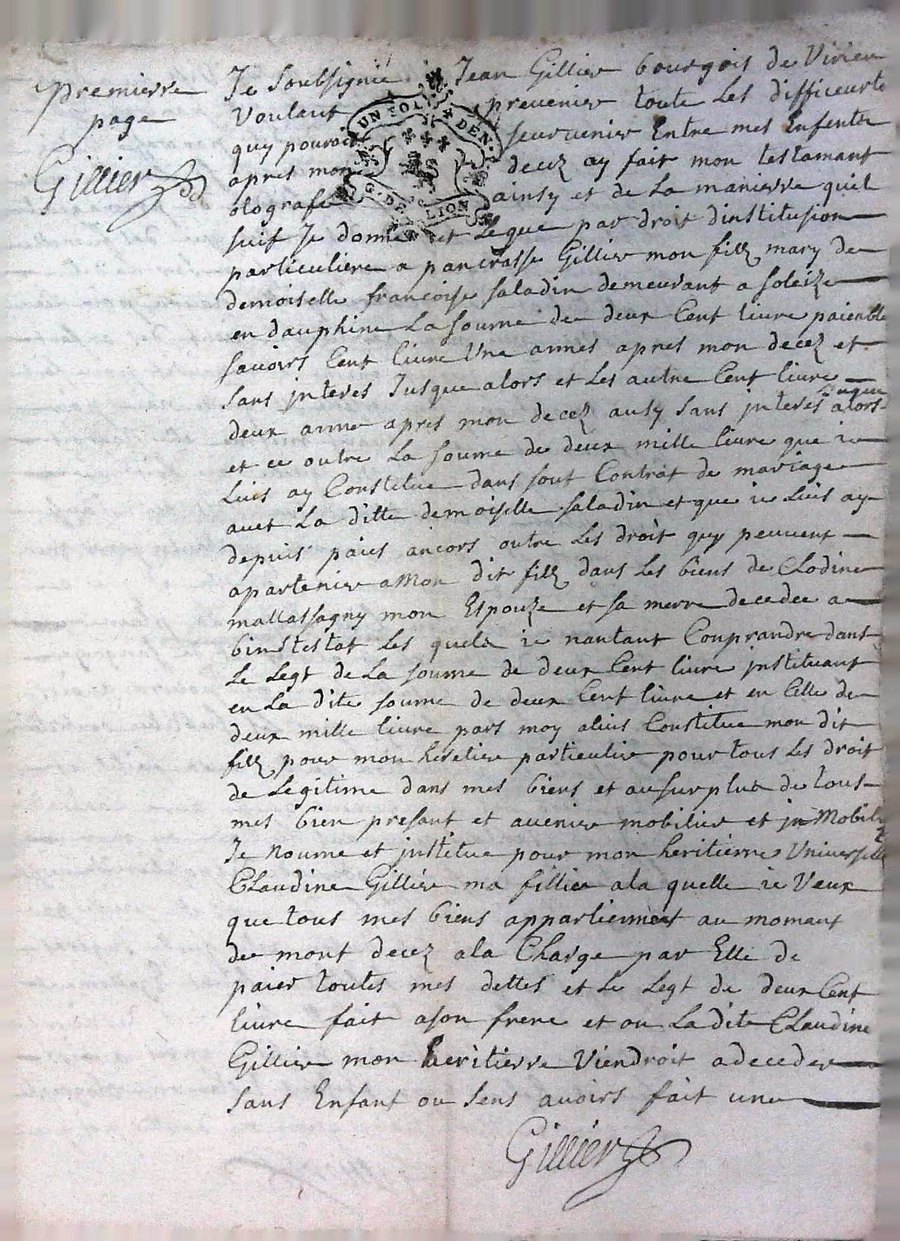 premierre
page
Gillier
UN SOL DEN.
G. DE LION
Je Soubsigne Jean Gillier bourgois de
Voulant prevenier toute Les difficeurte
quy pouroit seurvenier Entre mes Enfents
apres mon decez ay fait mon testamant
olografe ainsy et de La manierre quil
suit Je donne et Legue par droit dinstitusion
particuliere a pancrasse Gillier mon fillz mary de
demoiselle francoise Saladin demeurant a Soleize
en dauphine La soume de deux Cent livre paieable
savoirs Cent livre Une annes apres mon decez et
sans jnteres Jusque alors et Les autre Cent livre
deux anne apres mon decez ausy sans jnteres Jusque alors
et ce outre La soume de deux mille livre que ie
Luis ay Constitue dans sont Contrat de mariage
avet La ditte demoiselle Saladin et que ie Luis ay
depuis paies ancors outre Les droit quy peuvent
apartenier a Mon dit fillz dans Les biens de Clodine
mallassagny mon Espouze et sa merre decedee a
binstestat Les quels ie nantant Conprandre dans
Le Legt de La soume de deux Cent livre jnstituant
en La dite soume de deux Cent livre et en Celle de
deux mille livre pars moy aluis Constitue mon dit
fillz pour mon heretier particulier pour tous Les droit
de Legitime dans mes biens et au surplus de tous
mes bien presant et avenier mobilier et jnMobilier
Je noume et jnstitue pour mon heritierre Universelle
Claudine Gillier ma fillie ala quelle ie Veux
que tous mes biens appartiennent au momant
de mont decez ala Charge par Elle de
paier toutes mes dettes et Le Legt de deux Cent
livre fait ason frere et ou La dite Claudine
Gillier mon heritierre Viendroit adeceder
sans Enfant ou sens avoirs fait une
Gillier